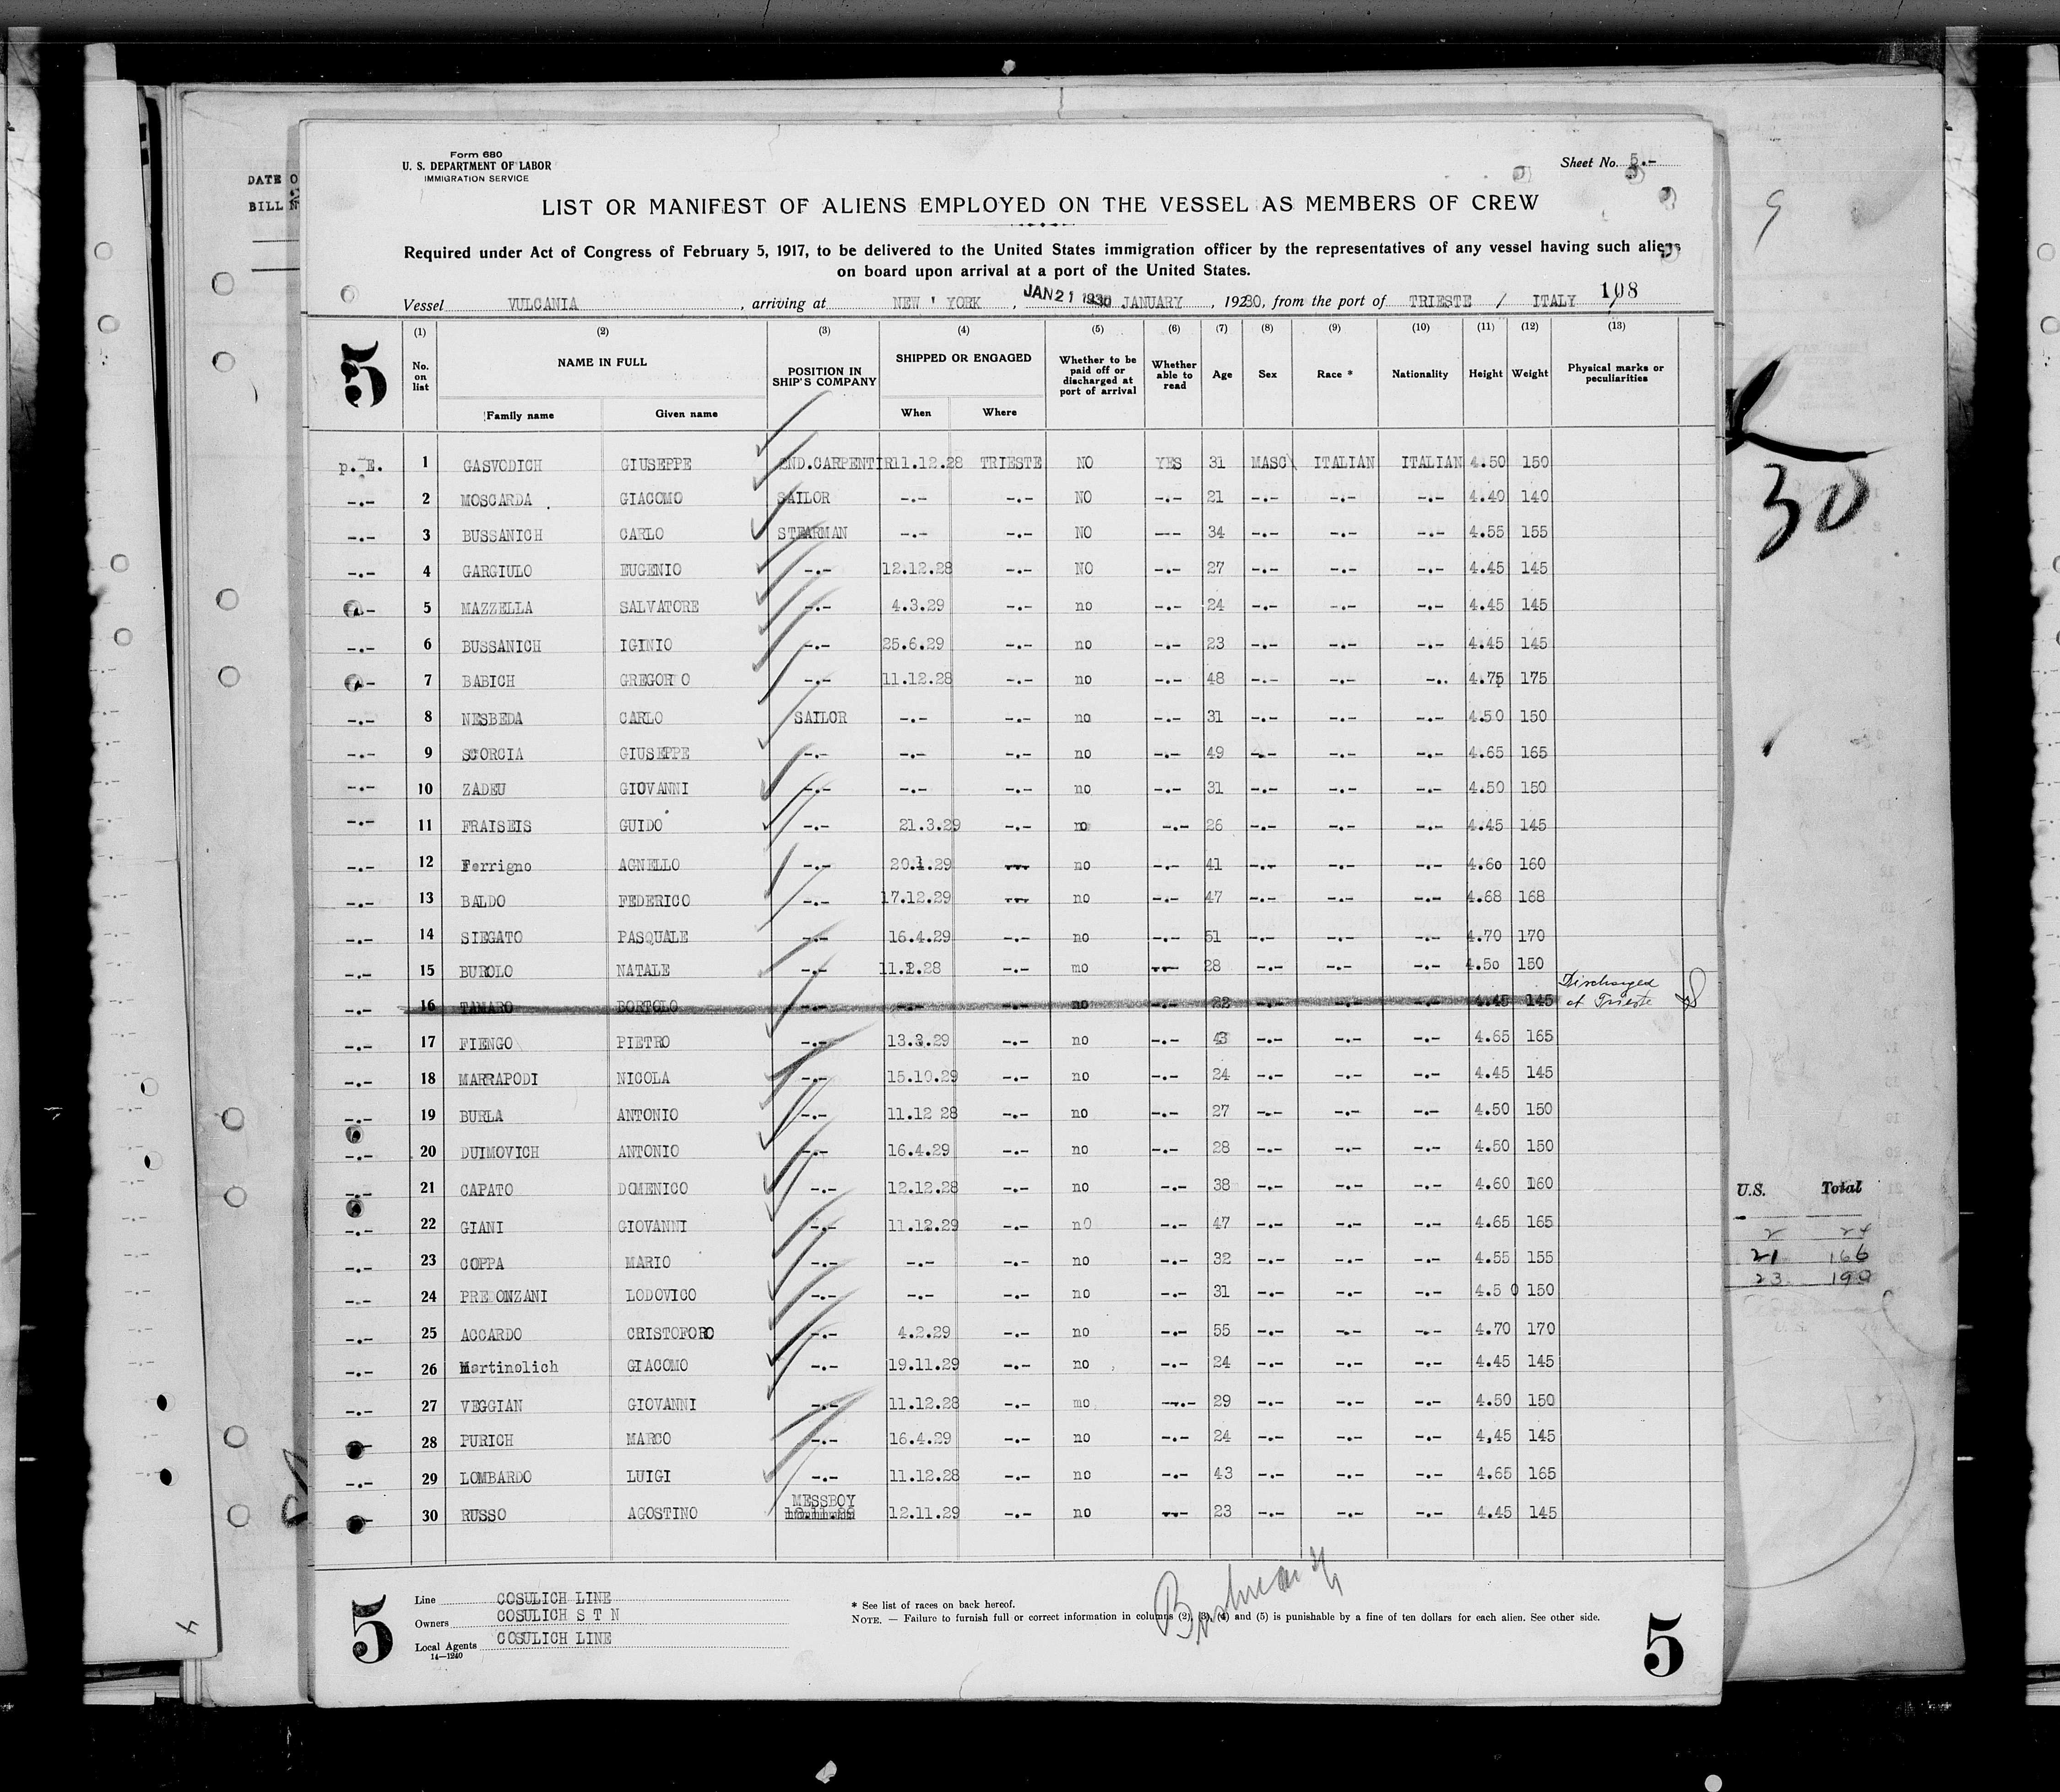 Form 680
U. S. DEPARTMENT OF LABOR
IMMIGRATION SERVICE
Sheet No. 5.-
DATE O
BILL N
LIST OR MANIFEST OF ALIENS EMPLOYED ON THE VESSEL AS MEMBERS OF CREW
Required under Act of Congress of February 5, 1917, to be delivered to the United States immigration officer by the representatives of any vessel having such aliens
on board upon arrival at a port of the United States.
Vessel VULCANIA, arriving at NEW YORK, JAN 21 1930 JANUARY, 19230, from the port of TRIESTE / ITALY 108
5
(1) (2) (3) (4) (5) (6) (7) (8) (9) (10) (11) (12) (13)
No. on list NAME IN FULL POSITION IN SHIP'S COMPANY SHIPPED OR ENGAGED Whether to be paid off or discharged at port of arrival Whether able to read Age Sex Race * Nationality Height Weight Physical marks or peculiarities
Family name Given name When Where
p. E. 1 GASVODICH GIUSEPPE 2ND.CARPENTIR 11.12.28 TRIESTE NO YES 31 MASC ITALIAN ITALIAN 4.50 150
-.- 2 MOSCARDA GIACOMO SAILOR -.- -.- NO -.- 21 -.- -.- -.- 4.40 140
-.- 3 BUSSANICH CARLO STEARMAN -.- -.- NO --- 34 -.- -.- -.- 4.55 155
-.- 4 GARGIULO EUGENIO -.- 12.12.28 -.- NO -.- 27 -.- -.- -.- 4.45 145
-.- 5 MAZZELLA SALVATORE -.- 4.3.29 -.- no -.- 24 -.- -.- -.- 4.45 145
-.- 6 BUSSANICH IGINIO -.- 25.6.29 -.- no -.- 23 -.- -.- -.- 4.45 145
-.- 7 BABICH GREGORIO -.- 11.12.28 -.- no -.- 48 -.- -.- -.. 4.75 175
-.- 8 NESBEDA CARLO SAILOR -.- -.- no -.- 31 -.- -.- -.- 4.50 150
-.- 9 SCORCIA GIUSEPPE -.- -.- -.- no -.- 49 -.- -.- -.- 4.65 165
-.- 10 ZADEU GIOVANNI -.- -.- -.- no -.- 31 -.- -.- -.- 4.50 150
-.- 11 FRAISEIS GUIDO -.- 21.3.29 -.- no -.- 26 -.- -.- -.- 4.45 145
-.- 12 Ferrigno AGNELLO -.- 20.1.29 -.- no -.- 41 -.- -.- -.- 4.60 160
-.- 13 BALDO FEDERICO -.- 17.12.29 -.- no -.- 47 -.- -.- -.- 4.68 168
-.- 14 SIEGATO PASQUALE -.- 16.4.29 -.- no -.- 51 -.- -.- -.- 4.70 170
-.- 15 BUROLO NATALE -.- 11.2.28 -.- mo -.- 28 -.- -.- -.- 4.50 150
-.- 16 TAMARO BORTOLO -.- -.- -.- no -.- 22 -.- -.- -.- 4.45 145 Discharged at Trieste
-.- 17 FIENGO PIETRO -.- 13.3.29 -.- no -.- 43 -.- -.- -.- 4.65 165
-.- 18 MARRAPODI NICOLA -.- 15.10.29 -.- no -.- 24 -.- -.- -.- 4.45 145
-.- 19 BURLA ANTONIO -.- 11.12 28 -.- no -.- 27 -.- -.- -.- 4.50 150
-.- 20 DUIMOVICH ANTONIO -.- 16.4.29 -.- no -.- 28 -.- -.- -.- 4.50 150
-.- 21 CAPATO DOMENICO -.- 12.12.28 -.- no -.- 38 -.- -.- -.- 4.60 160
-.- 22 GIANI GIOVANNI -.- 11.12.29 -.- nO -.- 47 -.- -.- -.- 4.65 165
-.- 23 COPPA MARIO -.- -.- -.- no -.- 32 -.- -.- -.- 4.55 155
-.- 24 PREDONZANI LODOVICO -.- -.- -.- no -.- 31 -.- -.- -.- 4.5 0 150
-.- 25 ACCARDO CRISTOFORO -.- 4.2.29 -.- no -.- 55 -.- -.- -.- 4.70 170
-.- 26 Martinolich GIACOMO -.- 19.11.29 -.- no -.- 24 -.- -.- -.- 4.45 145
-.- 27 VEGGIAN GIOVANNI -.- 11.12.28 -.- mo --.- 29 -.- -.- -.- 4.50 150
-.- 28 PURICH MARCO -.- 16.4.29 -.- no -.- 24 -.- -.- -.- 4,45 145
-.- 29 LOMBARDO LUIGI -.- 11.12.28 -.- no -.- 43 -.- -.- -.- 4.65 165
-.- 30 RUSSO AGOSTINO MESSBOY 12.11.29 -.- no -.- 23 -.- -.- -.- 4.45 145
5
Line COSULICH LINE
Owners COSULICH S T N
Local Agents COSULICH LINE
14—1240
* See list of races on back hereof.
NOTE. — Failure to furnish full or correct information in columns (2), (3), (4) and (5) is punishable by a fine of ten dollars for each alien. See other side.
5
9
30
U.S. Total
2 24
21 166
23 190
4